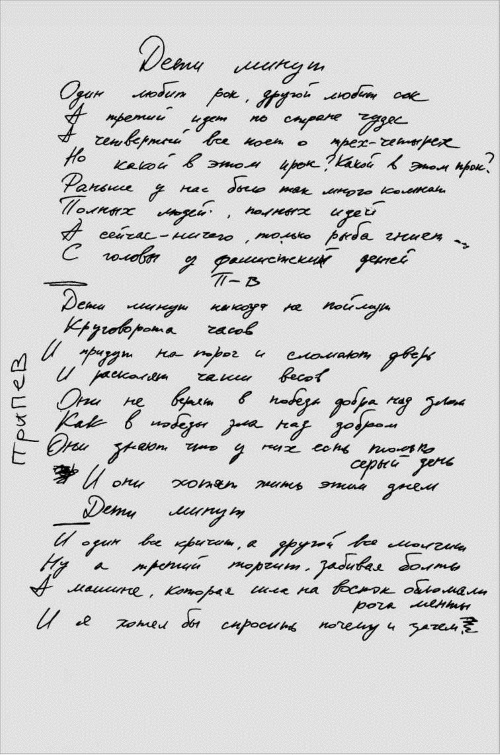 Дети минут
Один любит рок, другой любит сок
А третий идет по стране чудес
А четвертый все поет о трех-четырех
Но какой в этом урок? Какой в этом прок?
Раньше у нас было так много комнат
Полных людей, полных идей
А сейчас-ничего, только рыба гниет ...
С головы у фашистских детей
П-в
Дети минут никогда не поймут
Круговорота часов
И придут на порог и сломают дверь
И расколят чаши весов
Они не верят в победы добра над злом
Как в победы зла над добром
Они знают что у них есть только
серый день
И они хотят жить этим днем
Дети минут
ПриПеВ
И один все кричит, а другой все молчит
Ну а третий торчит, забивая болты
А машине, которая шла на восток обломали
рога менты
И я хотел бы спросить почему и зачем?